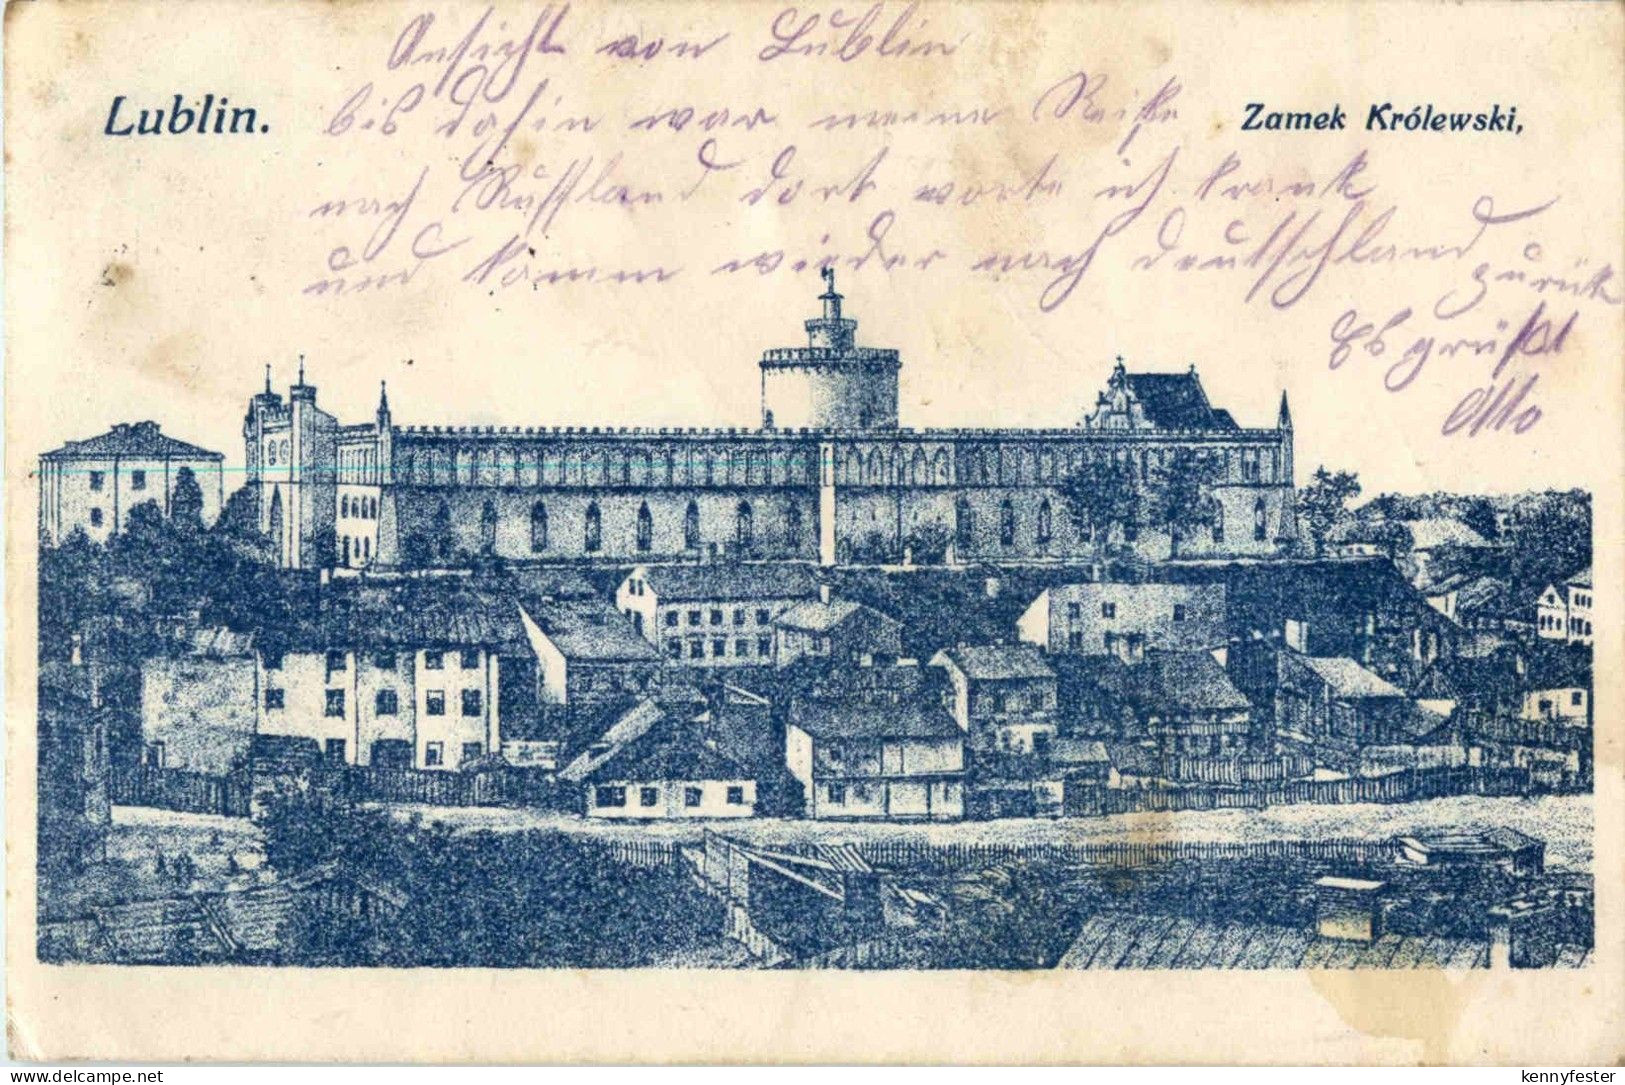 Lublin.
Zamek Królewski,
Ansicht von Lublin
bis dahin war meine Reise
nach Russland dort worte ich krank
und kamm wieder nach Deutschland
zurük
Es grüßt
Otto
kennyfester